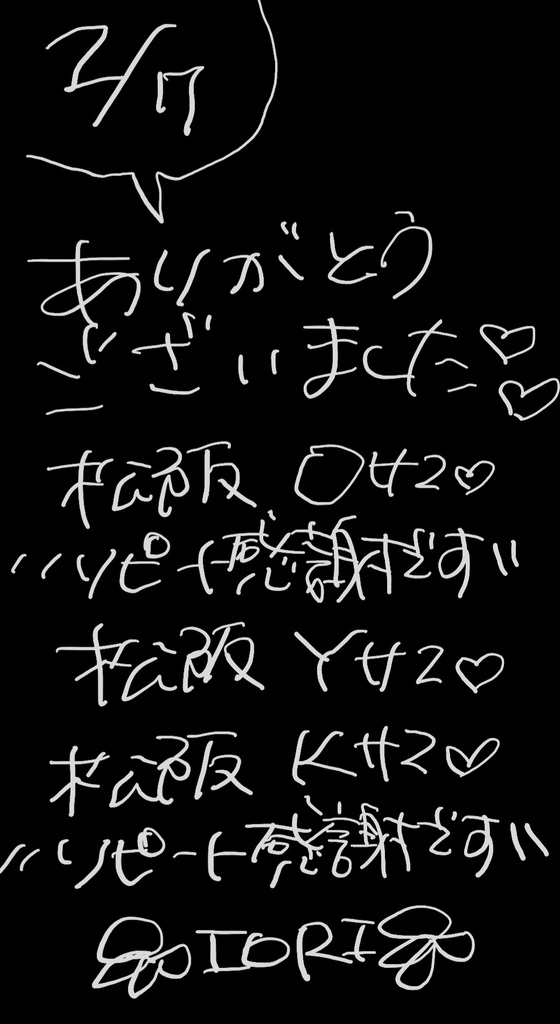 2/7
ありがとう
ございました♡♡
松阪 Oサマ♡
〃リピート感謝です〃
松阪 Yサマ♡
松阪 Kサマ♡
〃リピート感謝です〃
IORI